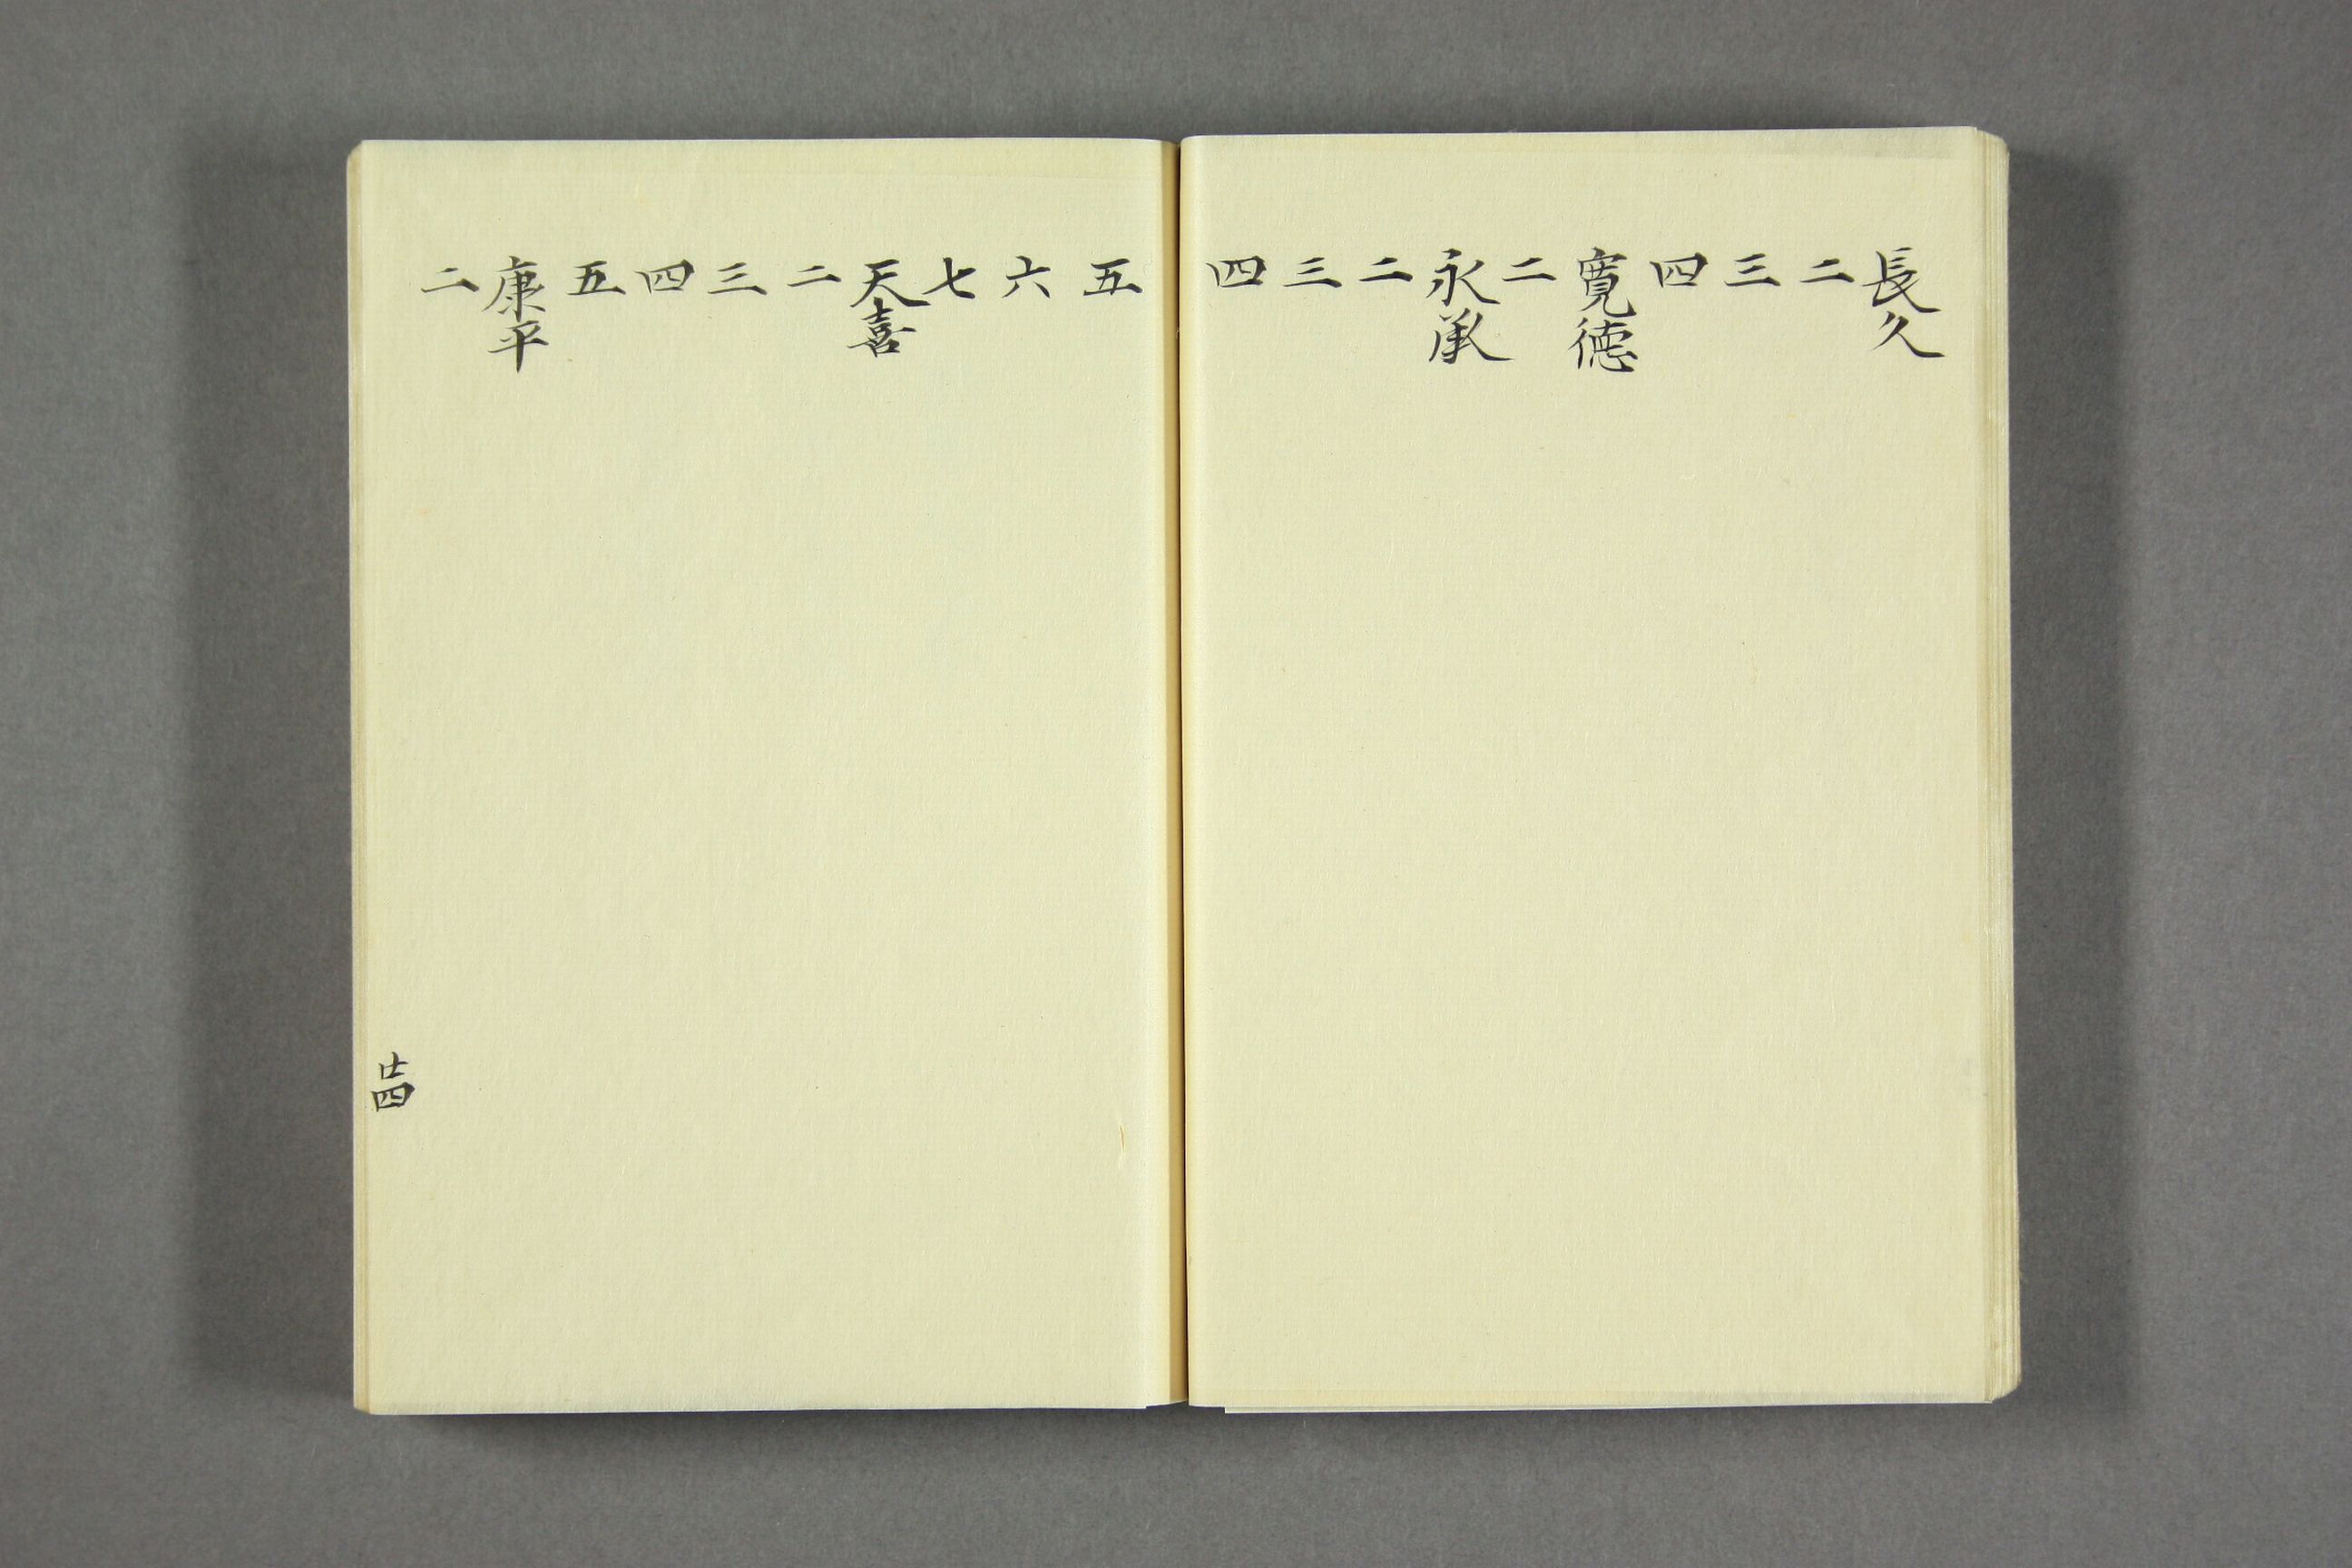 長久
二
三
四
寛徳
二
永承
二
三
四
五
六
七
天喜
二
三
四
五
康平
二
廿四